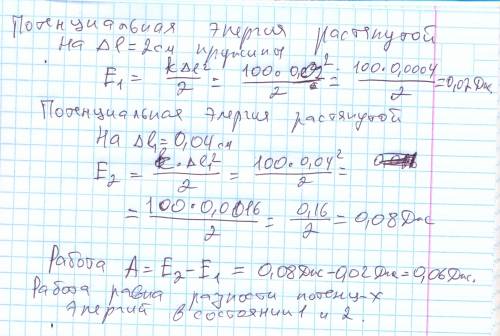 Потенциальная энергия растянутой
На Δl = 2см пружины
E₁ = kΔl²/2 = 100·0,02²/2 = 100·0,0004/2 = 0,02 Дж
Потенциальная энергия растянутой
На Δl₁ = 0,04 см
E₂ = k·Δl₁²/2 = 100·0,04²/2 =
= 100·0,0016/2 = 0,16/2 = 0,08 Дж
Работа A = E₂ - E₁ = 0,08 Дж - 0,02 Дж = 0,06 Дж.
Работа равна разности потенц-х
энергий в состоянии 1 и 2.